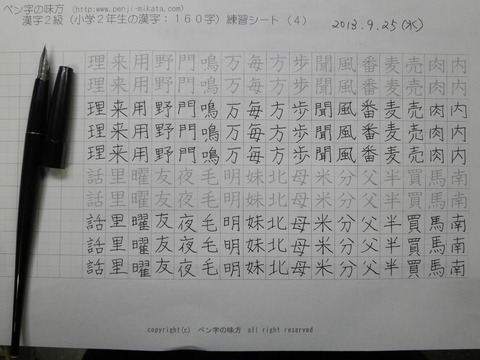 ペン字の味方 (http:www.penji-mikata.com)
漢字2級(小学2年生の漢字:160字)練習シート(4)
2013.9.25(水)
理来用野門鳴万毎方歩聞風番麦売肉内
理来用野門鳴万毎方歩聞風番麦売肉内
理来用野門鳴万毎方歩聞風番麦売肉内
理来用野門鳴万毎方歩聞風番麦売肉内
理来用野門鳴万毎方歩聞風番麦売肉内
話里曜友夜毛明妹北母米分父半買馬南
話里曜友夜毛明妹北母米分父半買馬南
話里曜友夜毛明妹北母米分父半買馬南
話里曜友夜毛明妹北母米分父半買馬南
話里曜友夜毛明妹北母米分父半買馬南
copyright(c) ペン字の味方 all right reserved